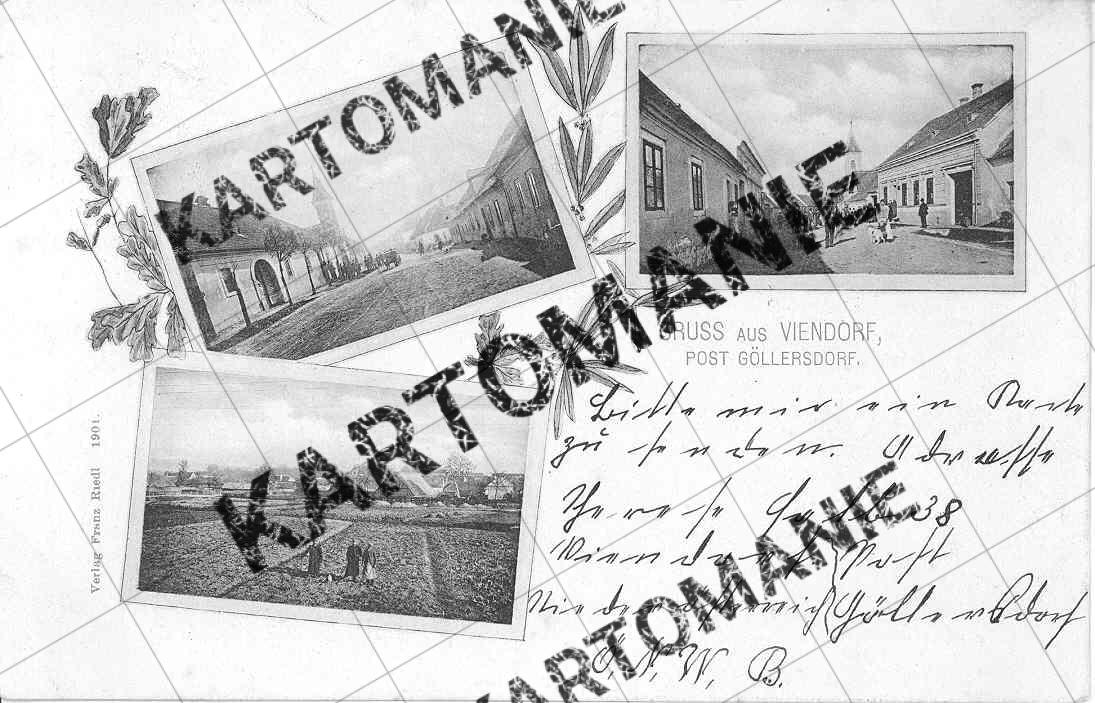 KARTOMANIE
KARTOMANIE
KARTOMANIE
GRUSS AUS VIENDORF,
POST GÖLLERSDORF.
Verlag Franz Riedl 1901.
Bitte mir ein Karte
zu senden. Adresse
Therese 38
Viendorf Post
Niederösterreich Göllersdorf
Ö. N. W. B.